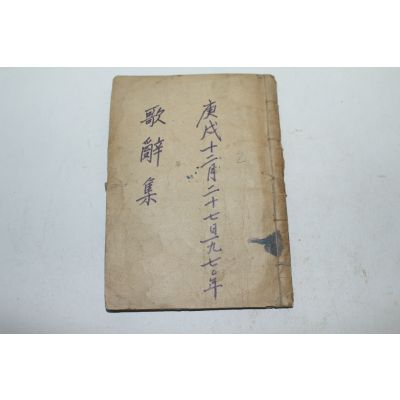 庚戌十二月二十七日一九七〇年
2
歌辭集